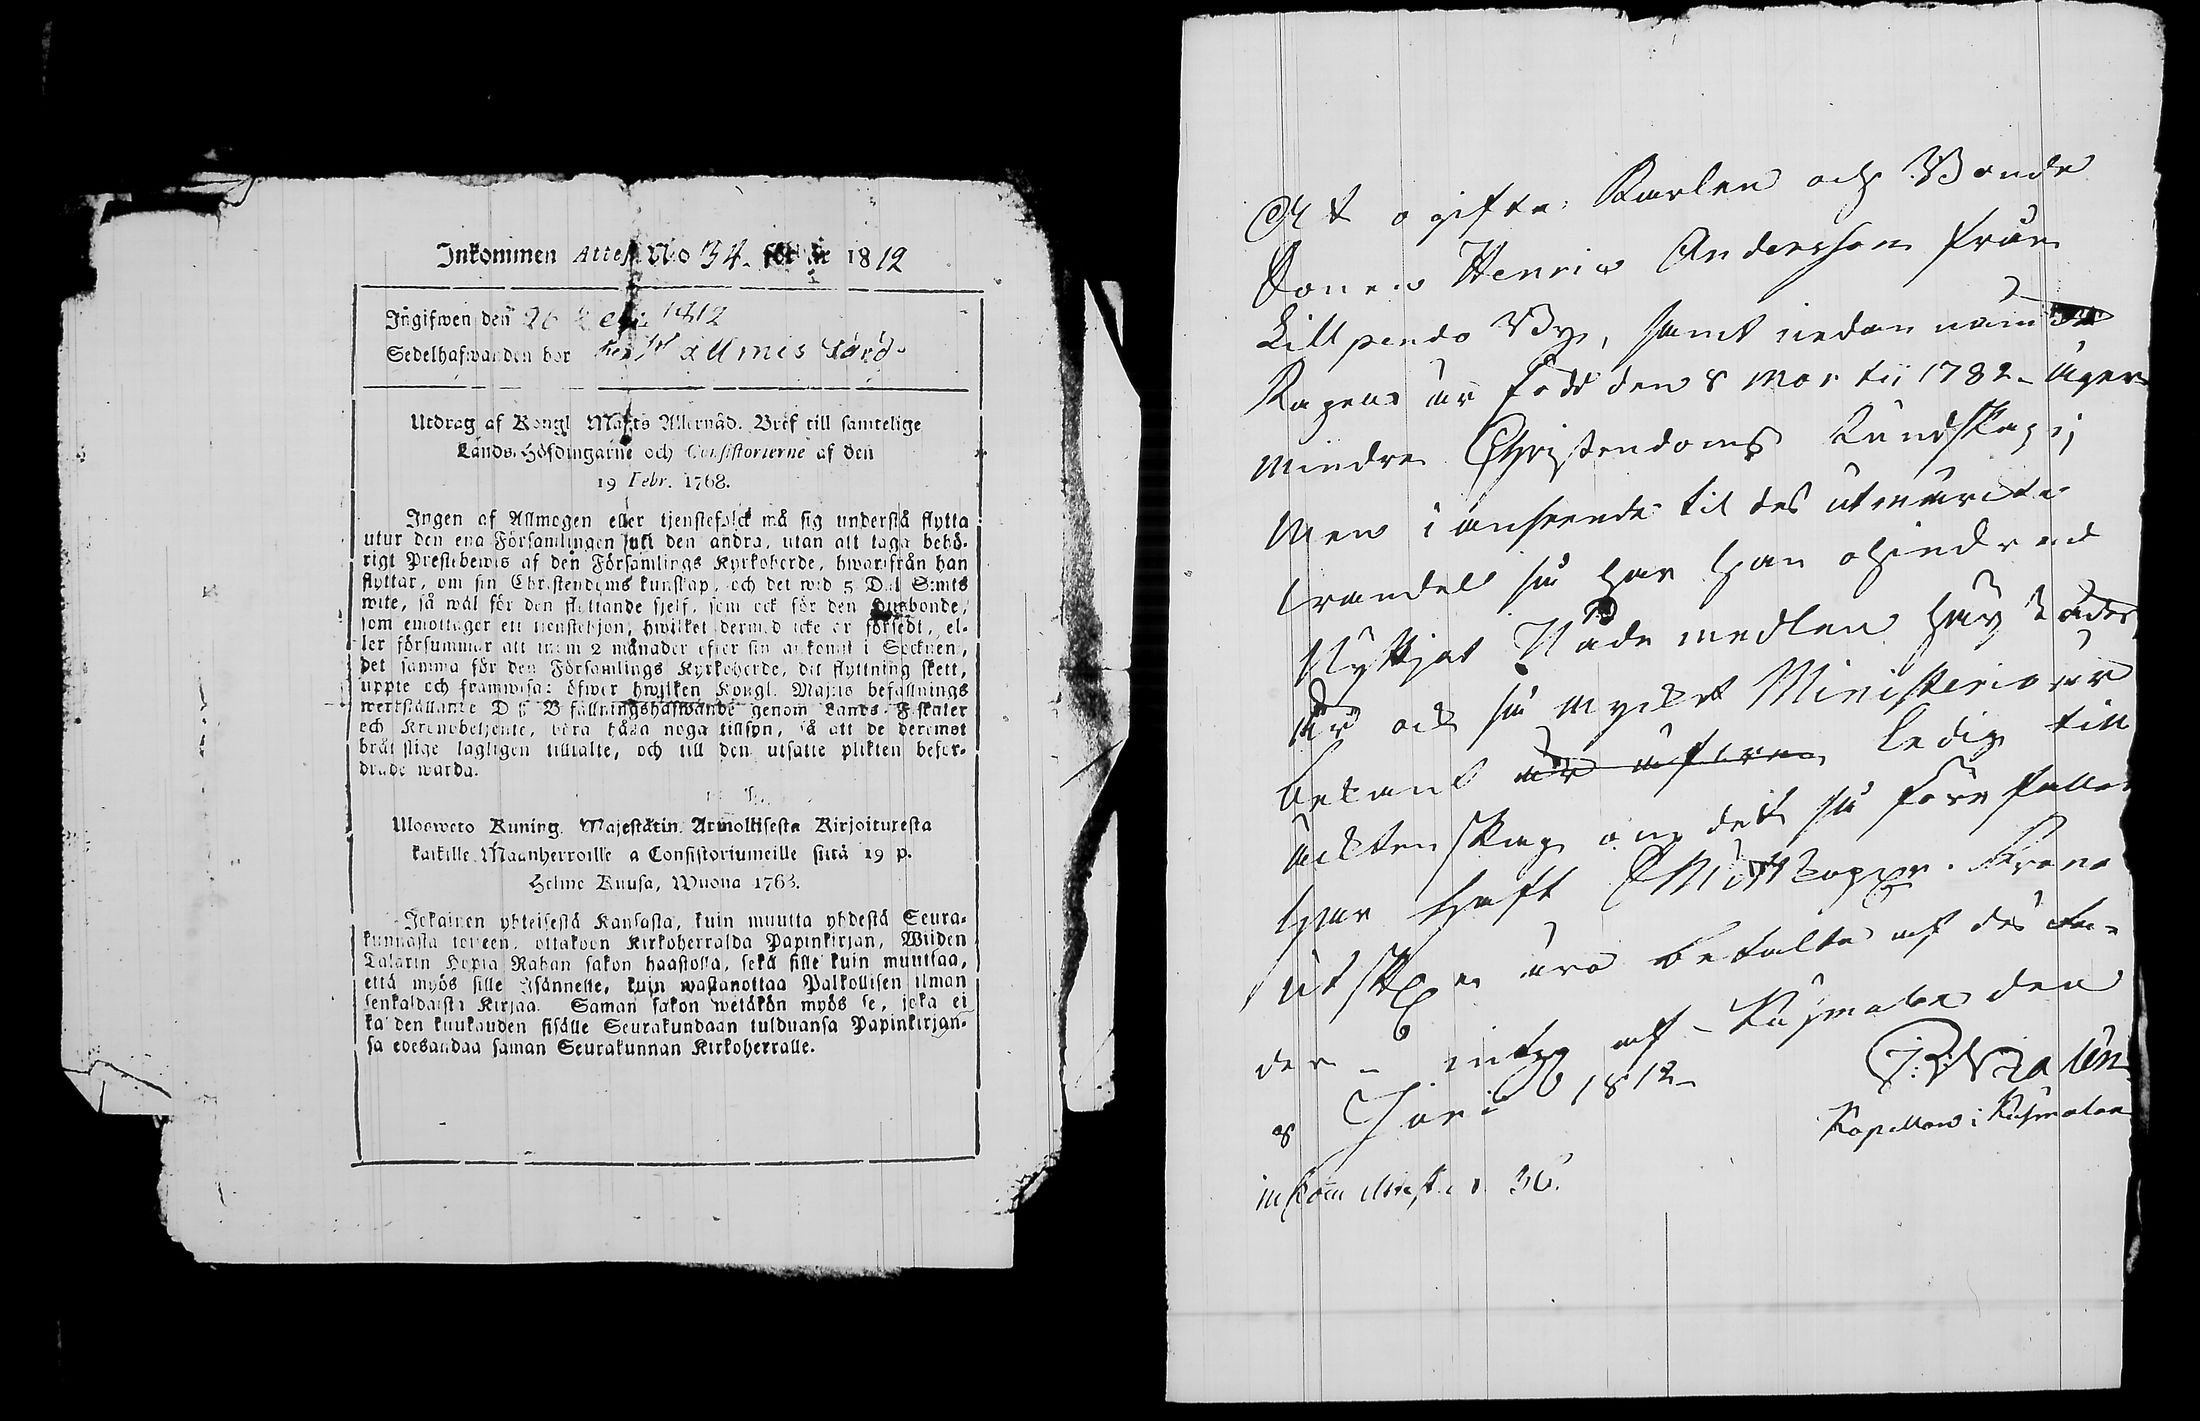 Inkommen Attest No 34. för år 1812
Ingifwen den 26 1812
Sedelhafwanden bor
Utdrag af Kongl Majts Allernåd. Bref till samtelige
Lands-Höfdingarne och Consistorierne af den
19 Febr. 1768.
Ingen af Allmogen eller tjenstefolck må sig understå flytta
utur den ena Församlingen uti den andra, utan att taga behö-
rigt Prestebewis af den Församlings Kyrkoherde, hwarifrån han
flyttar, om sin Christendoms kunskap, och det wid 5 Dal S:mts
wite, så wäl för den flyttande sjelf, som ock för den Husbonde,
som emottager ett tienstehjon, hwilket dermed icke är försedt, el-
ler försummar att inom 2 månader efter sin ankomst i Socknen,
det samma för den Församlings Kyrkoherde, dit flyttning skett,
uppte och framwisa: öfwer hwilken Kongl. Majts befallnings
werkställande D ß B fallningshafwande genom Lands-Fiskaler
och Kronobetjente, böra hålla noga tillsyn, så att de deremot
brått slige lagligen tilltalte, och till den utsatte plikten befor-
drade warda.
Ulosweto Kuning. Majestätin. Armollisesta Kirjoituxesta
kaikille Maanherroille a Consistoriumeille siitä 19 p.
Helme Kuusa, Wuona 1768.
Jokainen yhteisestä Kansasta, kuin muutta yhdestä Seura-
kunnasta toiseen, ottakoon Kirkoherralda Papinkirjan, Wiiden
Talarin Hopia Rahan sakon haastolla, sekä sille kuin muuttaa,
että myös sille Isännelle, kuin wastanottaa Palkollisen ilman
senkaldaista Kirjaa. Saman sakon wetäkön myös se, joka ei
ka den kuukauden sisälle Seurakundaan tulduansa Papinkirjan-
sa edesandaa saman Seurakunnan Kirkoherralle.
At ogifta Karlen och Bonde
Sonen Henric Andersson från
Killpendo By, samt nedan nämde
Ragen är född den 8 Martii 1782 - äger
mindre Christendoms Kundskap;
Men i anseende til des utmärckta
vandel så har han ohindrad
nyttjat Nådemedlen hög
är ock så mycket Ministerio är
bekant är äfven ledig till
ächtenskap om det så förefaller
har haft Skyddkoppor. Krono
utskylder äro betalte af des Fa-
der - intyg af - Kuhmalax den
8 Junii 1812 -
Kapellan i Kuhmalax
inkom Attest n 36.